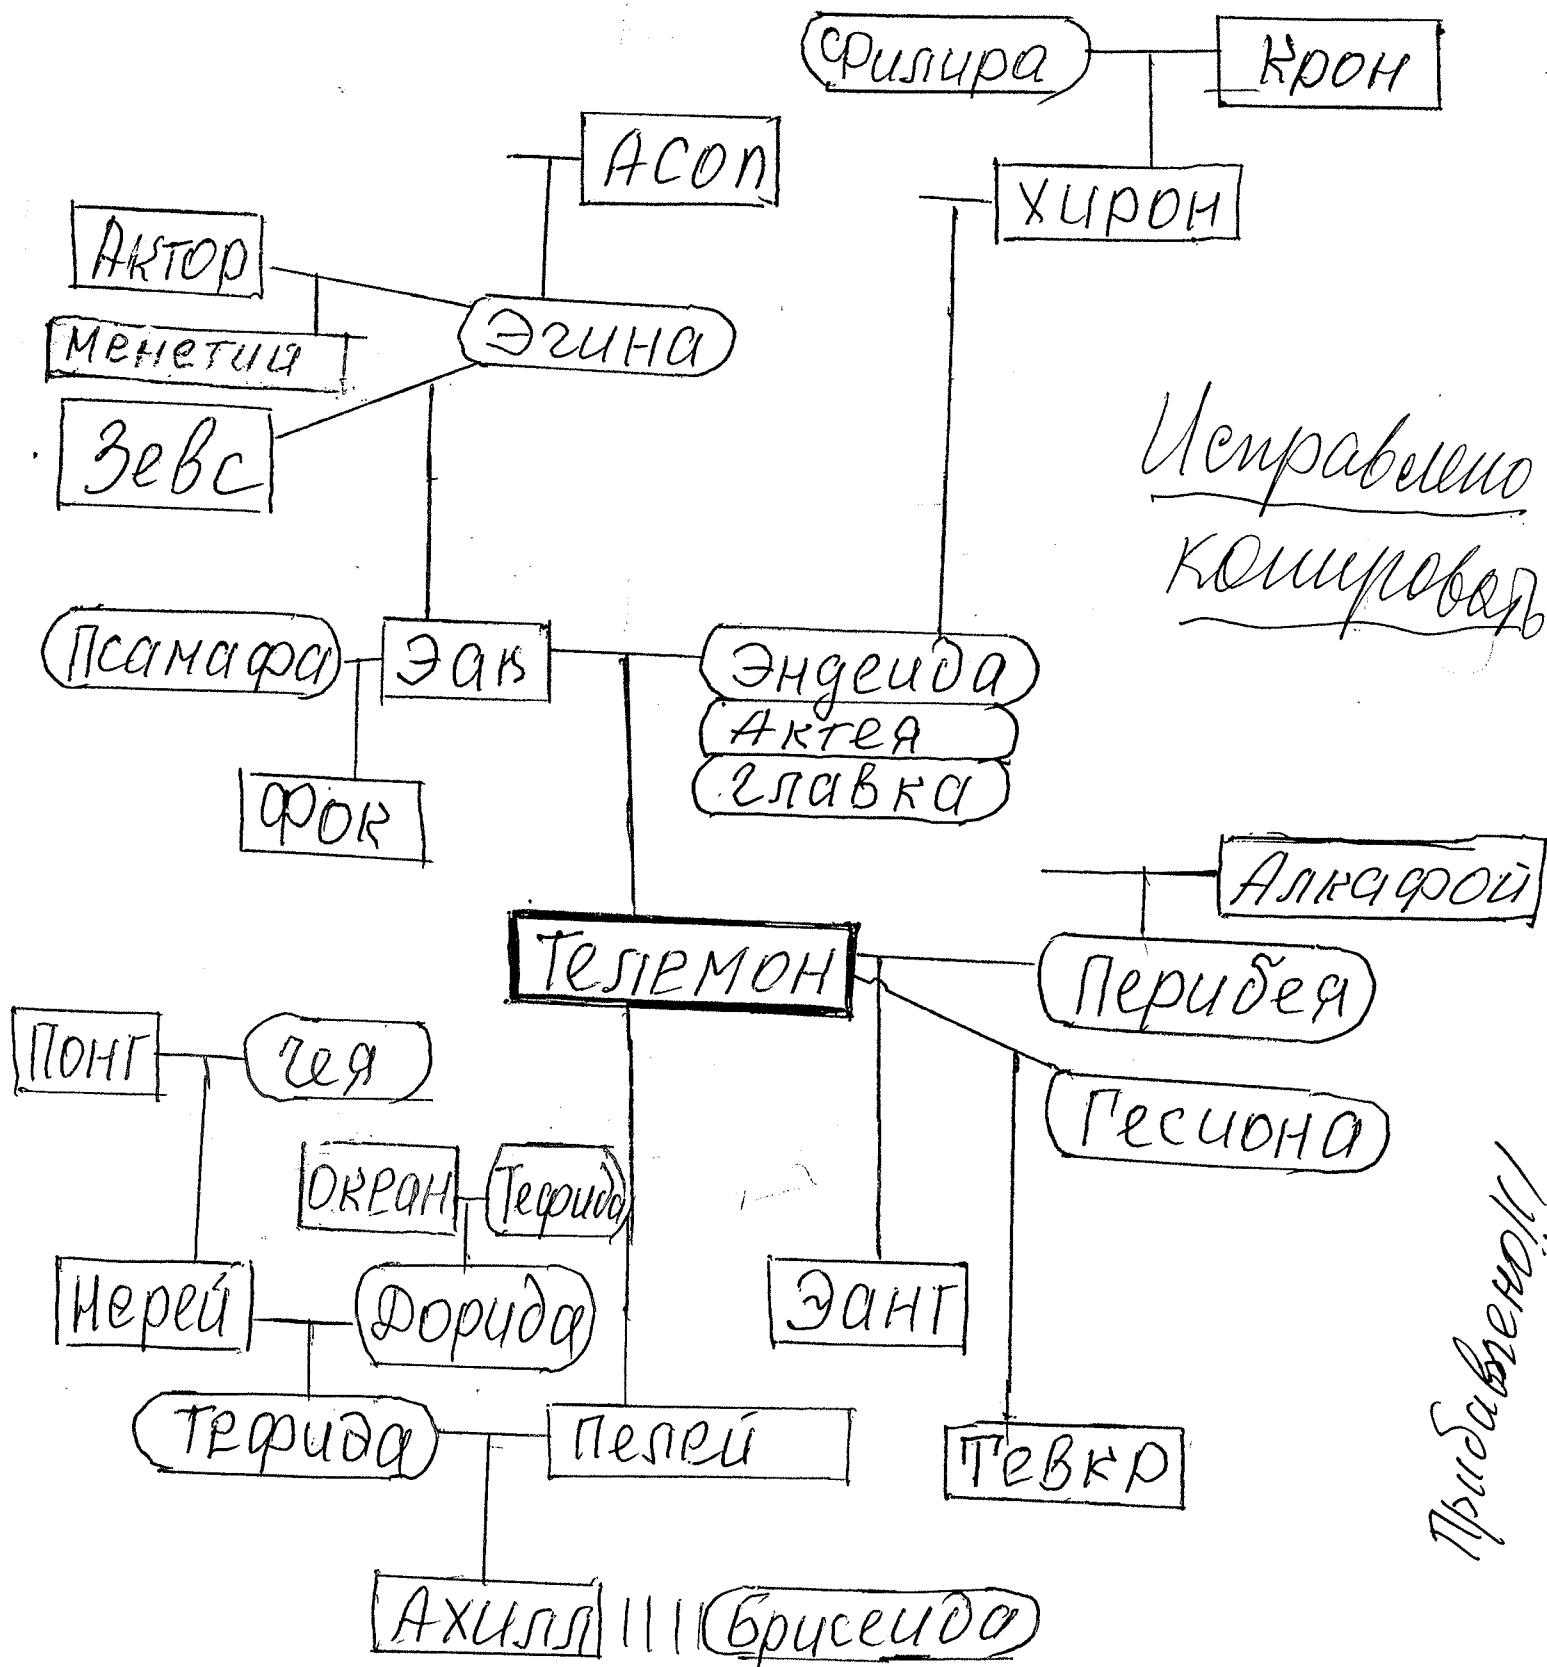 Филира
Крон
Асоп
Хирон
Актор
Менетий
Эгина
Зевс
Исправлено
копировать
Псамафа
Эак
Эндеида
Актея
Главка
Фок
Алкафой
Телемон
Перибея
Понт
Гея
Гесиона
Океан
Тефида
Нерей
Дорида
Эант
Прибавлено!!
Тефида
Пелей
Тевкр
Ахилл
Брисеида